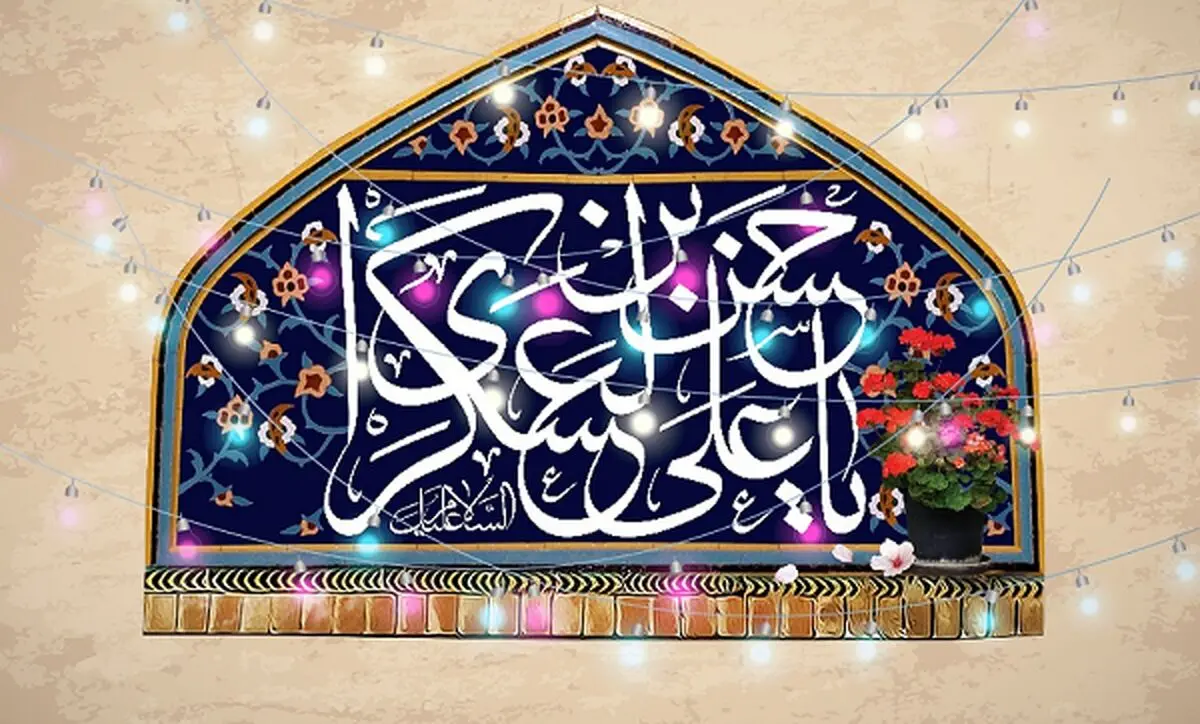 یا حسن بن علی
العسکری
السلام علیک